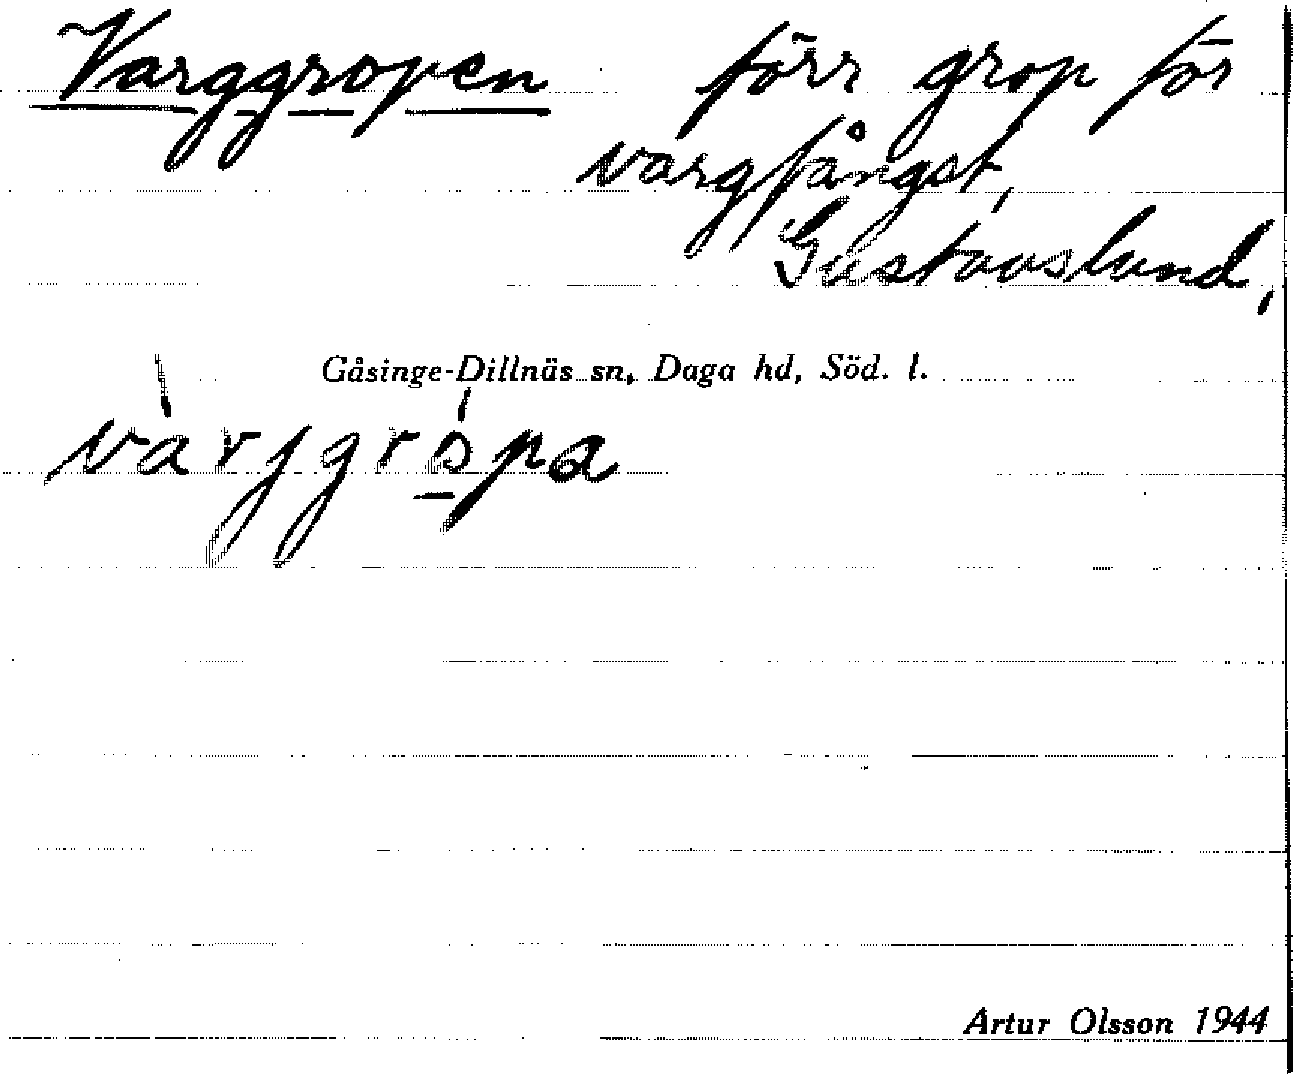 Varggropen förr grop för
vargfångst,
Gustavslund,
Gåsinge-Dillnäs sn, Daga hd, Söd. l.
va̍rjgro̍pa
Artur Olsson 1944